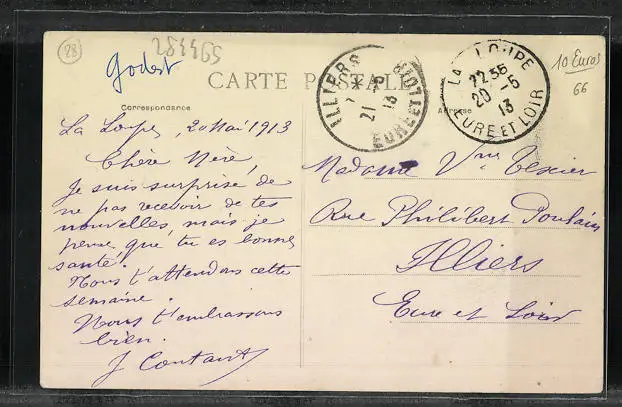 28
283395
Godest
10 Euros
66
CARTE POSTALE
Correspondance
Adresse
ILLIERS
21 - 5
13
EURE ET LOIR
LA LOUPE
22 35
20 - 5
13
EURE ET LOIR
La Loupe, 20 Mai 1913
Chère Mère,
Je suis surprise de
ne pas recevoir de tes
nouvelles, mais je
pense que tu es bonne
santé.
Nous t'attendons cette
semaine.
Nous t'embrassons
bien.
J Coutant
Madame Vve Texier
Rue Philibert Poulain
Illiers
Eure et Loir